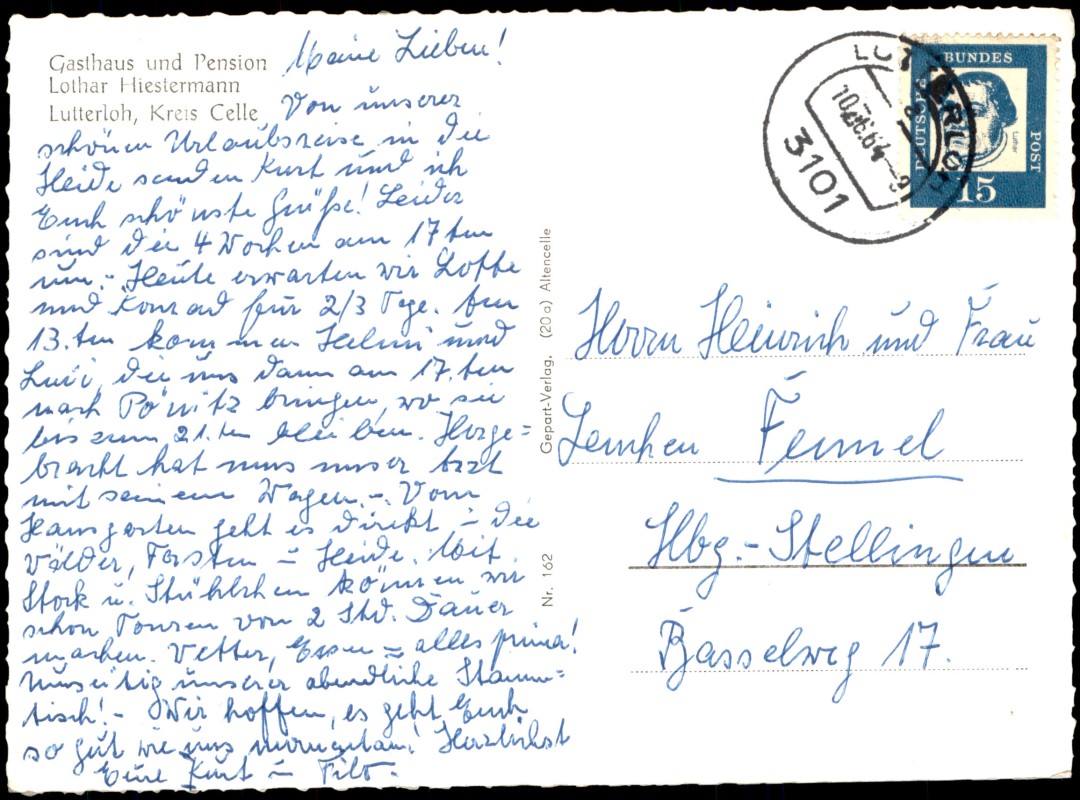 Gasthaus und Pension
Lothar Hiestermann
Lutterloh, Kreis Celle
Meine Lieben!
Von unserer
schönen Urlaubsreise in die
Heide senden Kurt und ich
Euch schönste Grüße! Leider
sind die 4 Wochen am 17ten
um.- Heute erwarten wir Lotte
und Konrad für 2/3 Tage. Am
13.ten kommen Helmi und
die uns dann am 17.ten
nach Pönitz bringen, wo sie
bis zum 21.ten bleiben. Herge=
bracht hat uns unser Arzt
mit seinem Wagen.-. Vom
Hausgarten geht es direkt i. die
Wälder, Forsten u. Heide. Mit
Stock u. Stühlchen können wir
schon Touren von 2 Std. Dauer
machen. Wetter, Essen = alles prima!
Umseitig unserer abendliche Stamm=
tisch!- Wir hoffen, es geht Euch
so gut wie uns momentan! Herzlichst
Eure Kurt u.
Gepart-Verlag, (20 a) Altencelle
Nr. 162
LUTTERLOH
10.6.64-9
3101
DEUTSCHE BUNDESPOST
Luther
15
Herrn Heinrich und Frau
Lenchen Femmel
Hbg.-Stellingen
Basselweg 17.